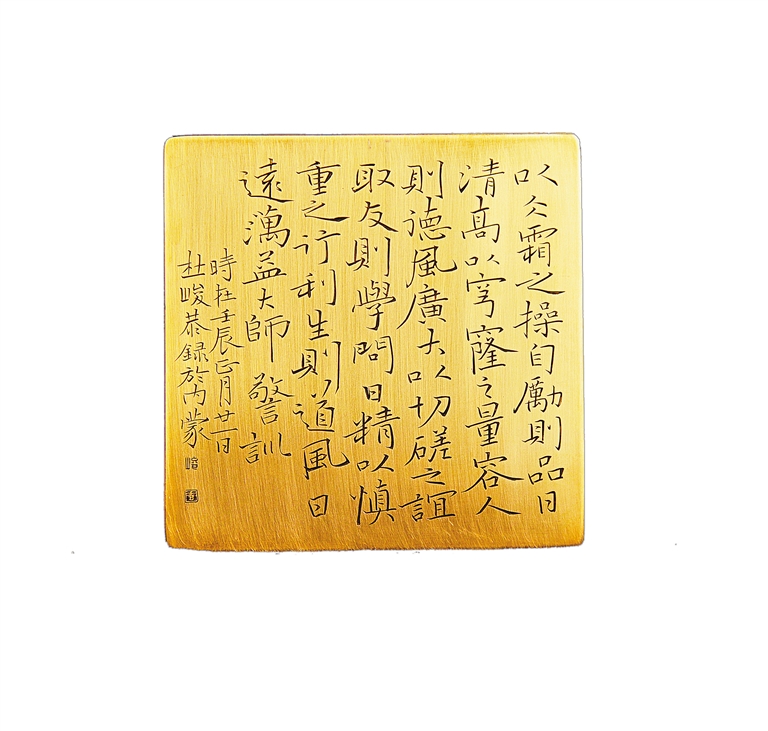 以仌霜之操自勵則品日
清高以穹窿之量容人
則德風廣大以切磋之誼
取友則學問日精以慎
重之行利生則道風日
遠蕅益大師 警訓
時在壬辰正月廿一日
杜峻恭録於內蒙